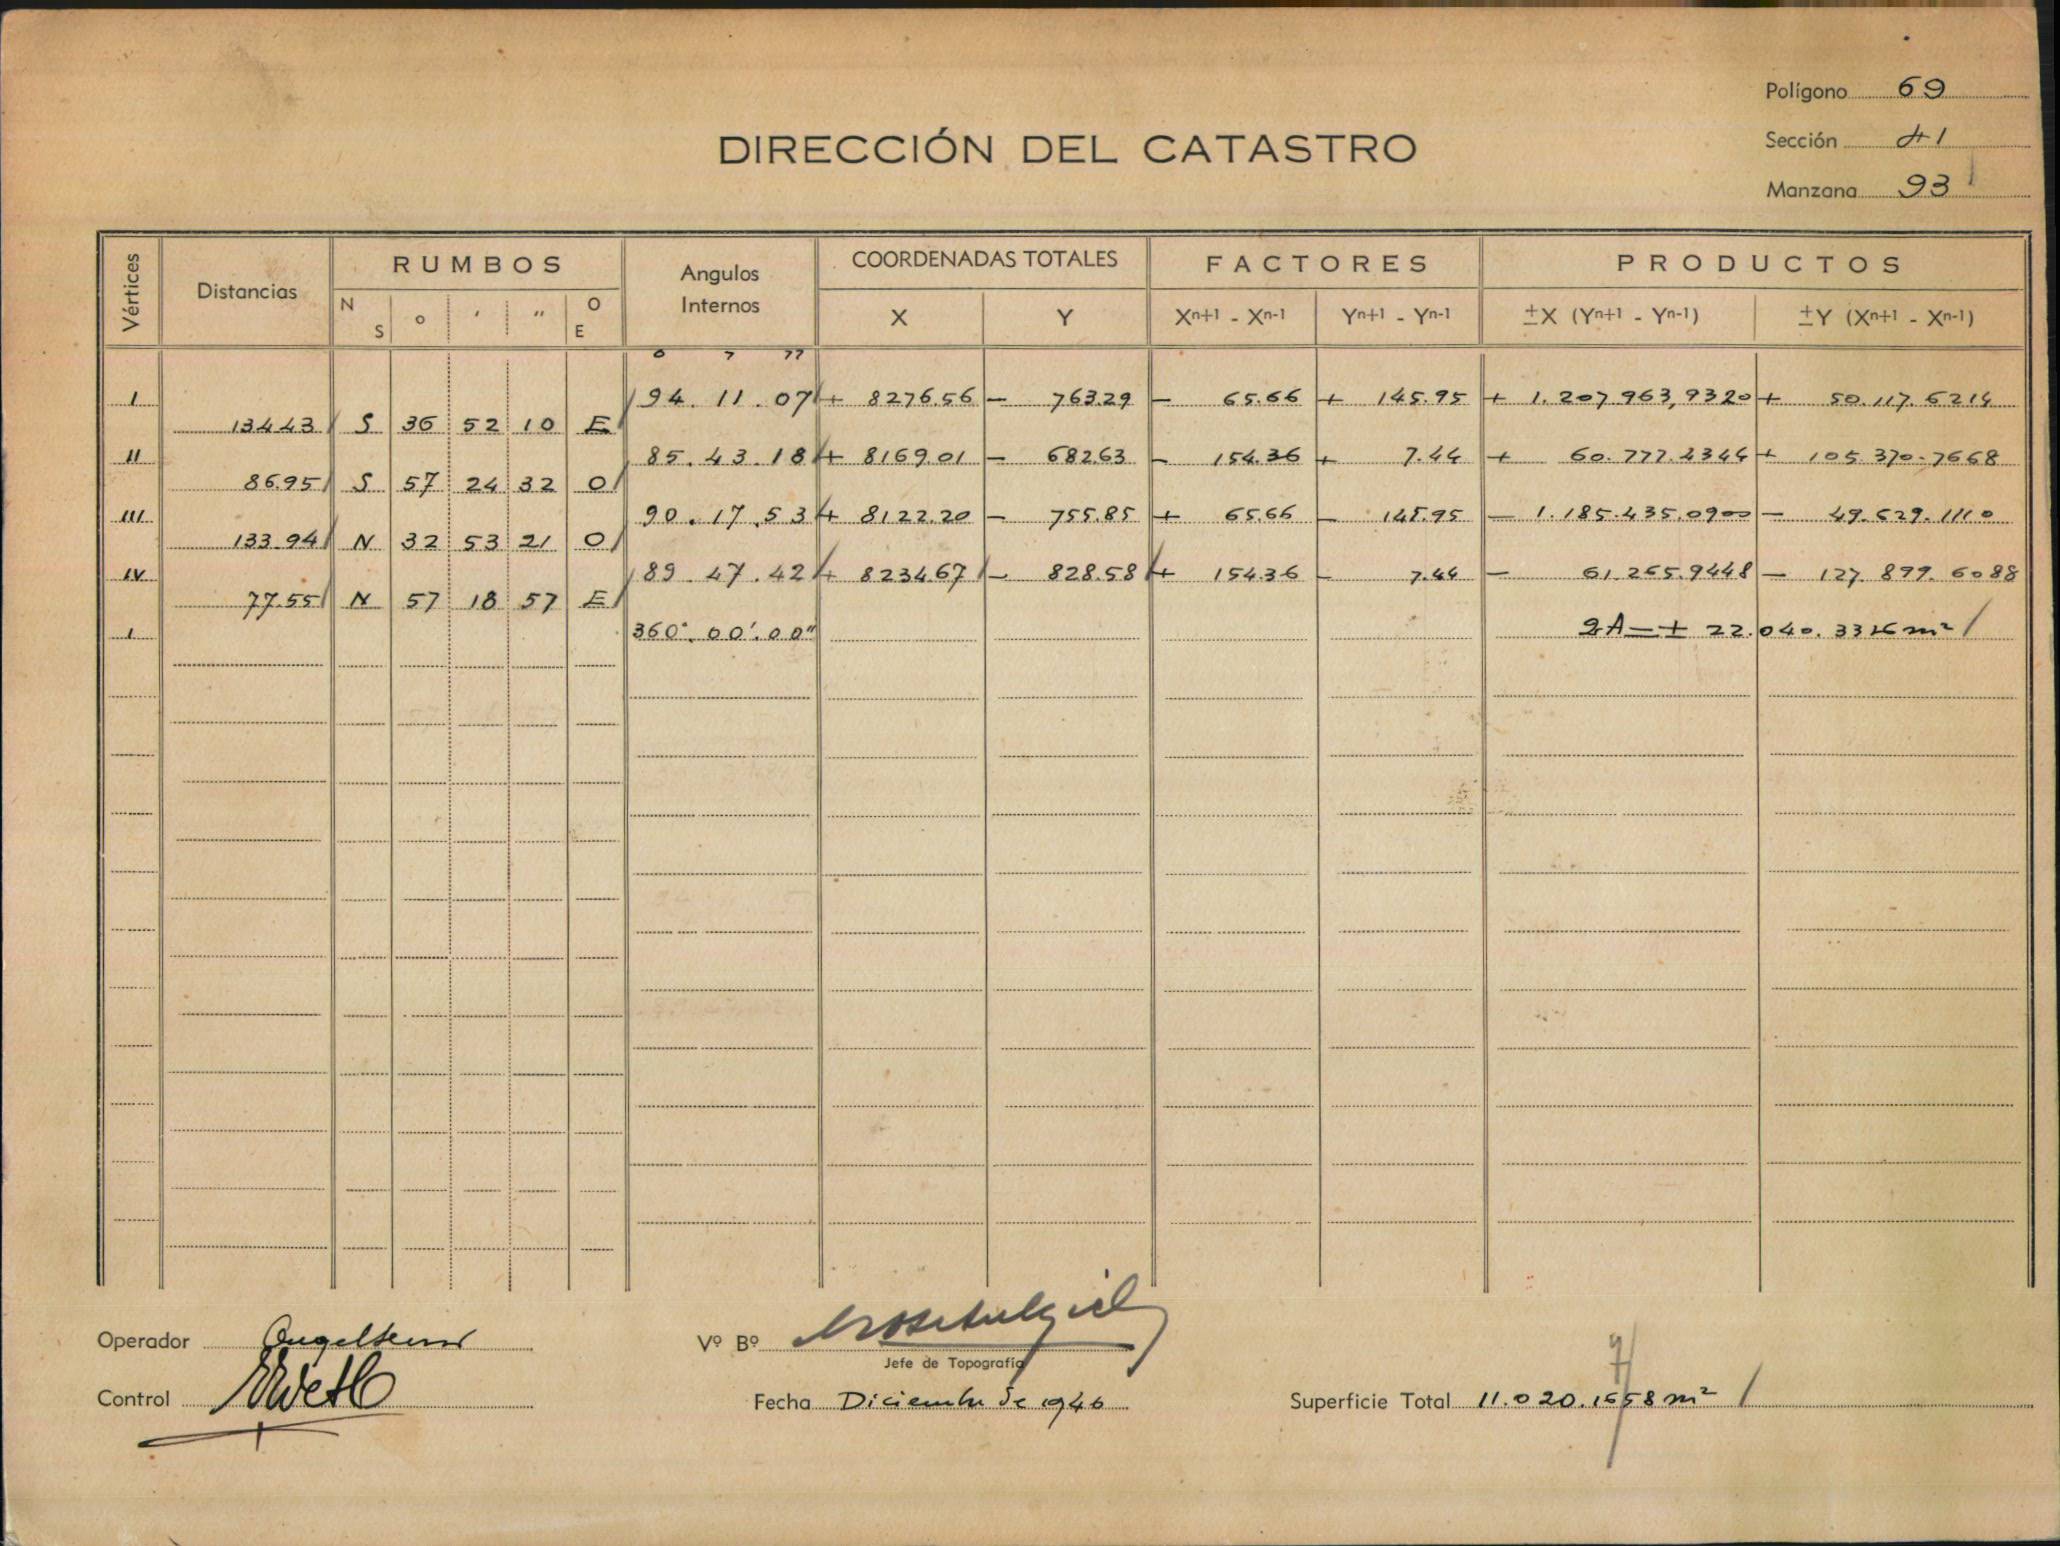 Polígono 69
DIRECCIÓN DEL CATASTRO
Sección 41
Manzana 93
Vértices Distancias RUMBOS Angulos Internos COORDENADAS TOTALES FACTORES PRODUCTOS
N S o ' " O E X Y Xn+1 - Xn-1 Yn+1 - Yn-1 ±X (Yn+1 - Yn-1) ±Y (Xn+1 - Xn-1)
o ' "
I 94. 11. 07 + 8276.56 — 763.29 — 65.66 + 145.95 + 1.207.963,9320 + 50.117.6214
134.43 S 36 52 10 E
II 85. 43. 18 + 8169.01 — 682.63 — 154.36 + 7.44 + 60.777.4344 + 105.370.7668
86.95 S 57 24 32 O
III 90. 17. 53 + 8122.20 — 755.85 + 65.66 — 145.95 — 1.185.435.0900 — 49.629.1110
133.94 N 32 53 21 O
IV 89. 47. 42 + 8234.67 — 828.58 + 154.36 — 7.44 — 61.265.9448 — 127.899.6088
77.55 N 57 18 57 E
I 360°. 00'. 00" 2A = + 22.040.3316 m²
Operador
Vº Bº
Jefe de Topografía
Control
Fecha Diciembre de 1946
Superficie Total 11.020.1658 m²